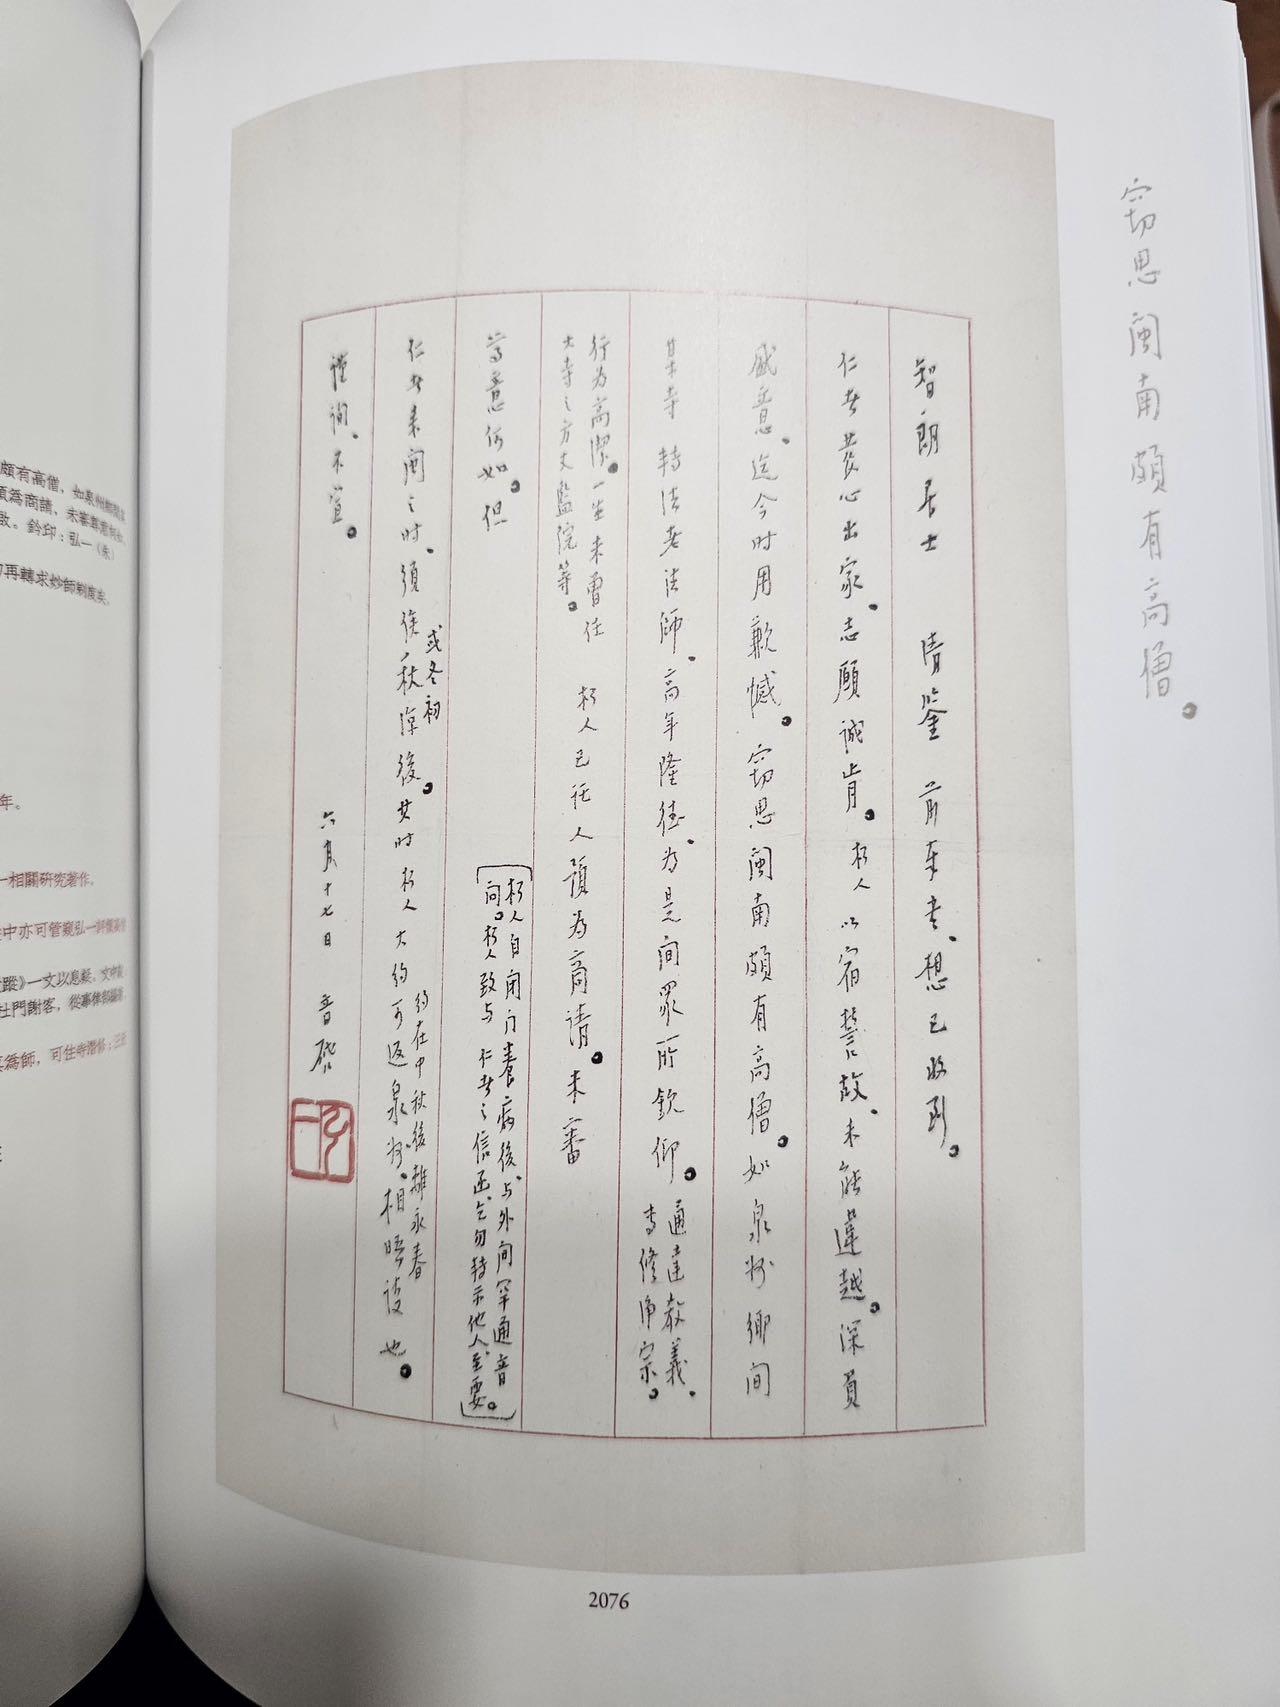 竊思閩南頗有高僧。
智朗居士 清鑒 前年書、想已收到。
仁者發心出家、志願誠肯。朽人以宿誓故、未能違越。深負
盛意、迄今時用歉憾。竊思閩南頗有高僧。如泉州鄉間
某寺 轉法老法師、高年隆德、為是間眾所欽仰。通達教義、
專修淨宗。
行為高潔。一生未曾任
大寺之方丈監院等。朽人已託人預為商請。未審
尊意何如。但
〔朽人自閉門養病後、与外間罕通音
問。朽人致与 仁者之信函、乞勿轉示他人、至要。〕
仁者来閩之时、須俟秋涼後。
或冬初
其时朽人大約可返泉州、相晤談也。
約在中秋後離永春
謹詢、不宣。
六月十七日 音啓
弘一
頗有高僧，如泉州鄉間某
預為商請，未審尊意何如
啟。鈐印：弘一（朱）
再轉求妙師剃度矣。
年。
一相關研究著作。
中亦可管窺弘一
蹤》一文以息疑。文中
杜門謝客，從事
為師，可住寺潛修；
2076